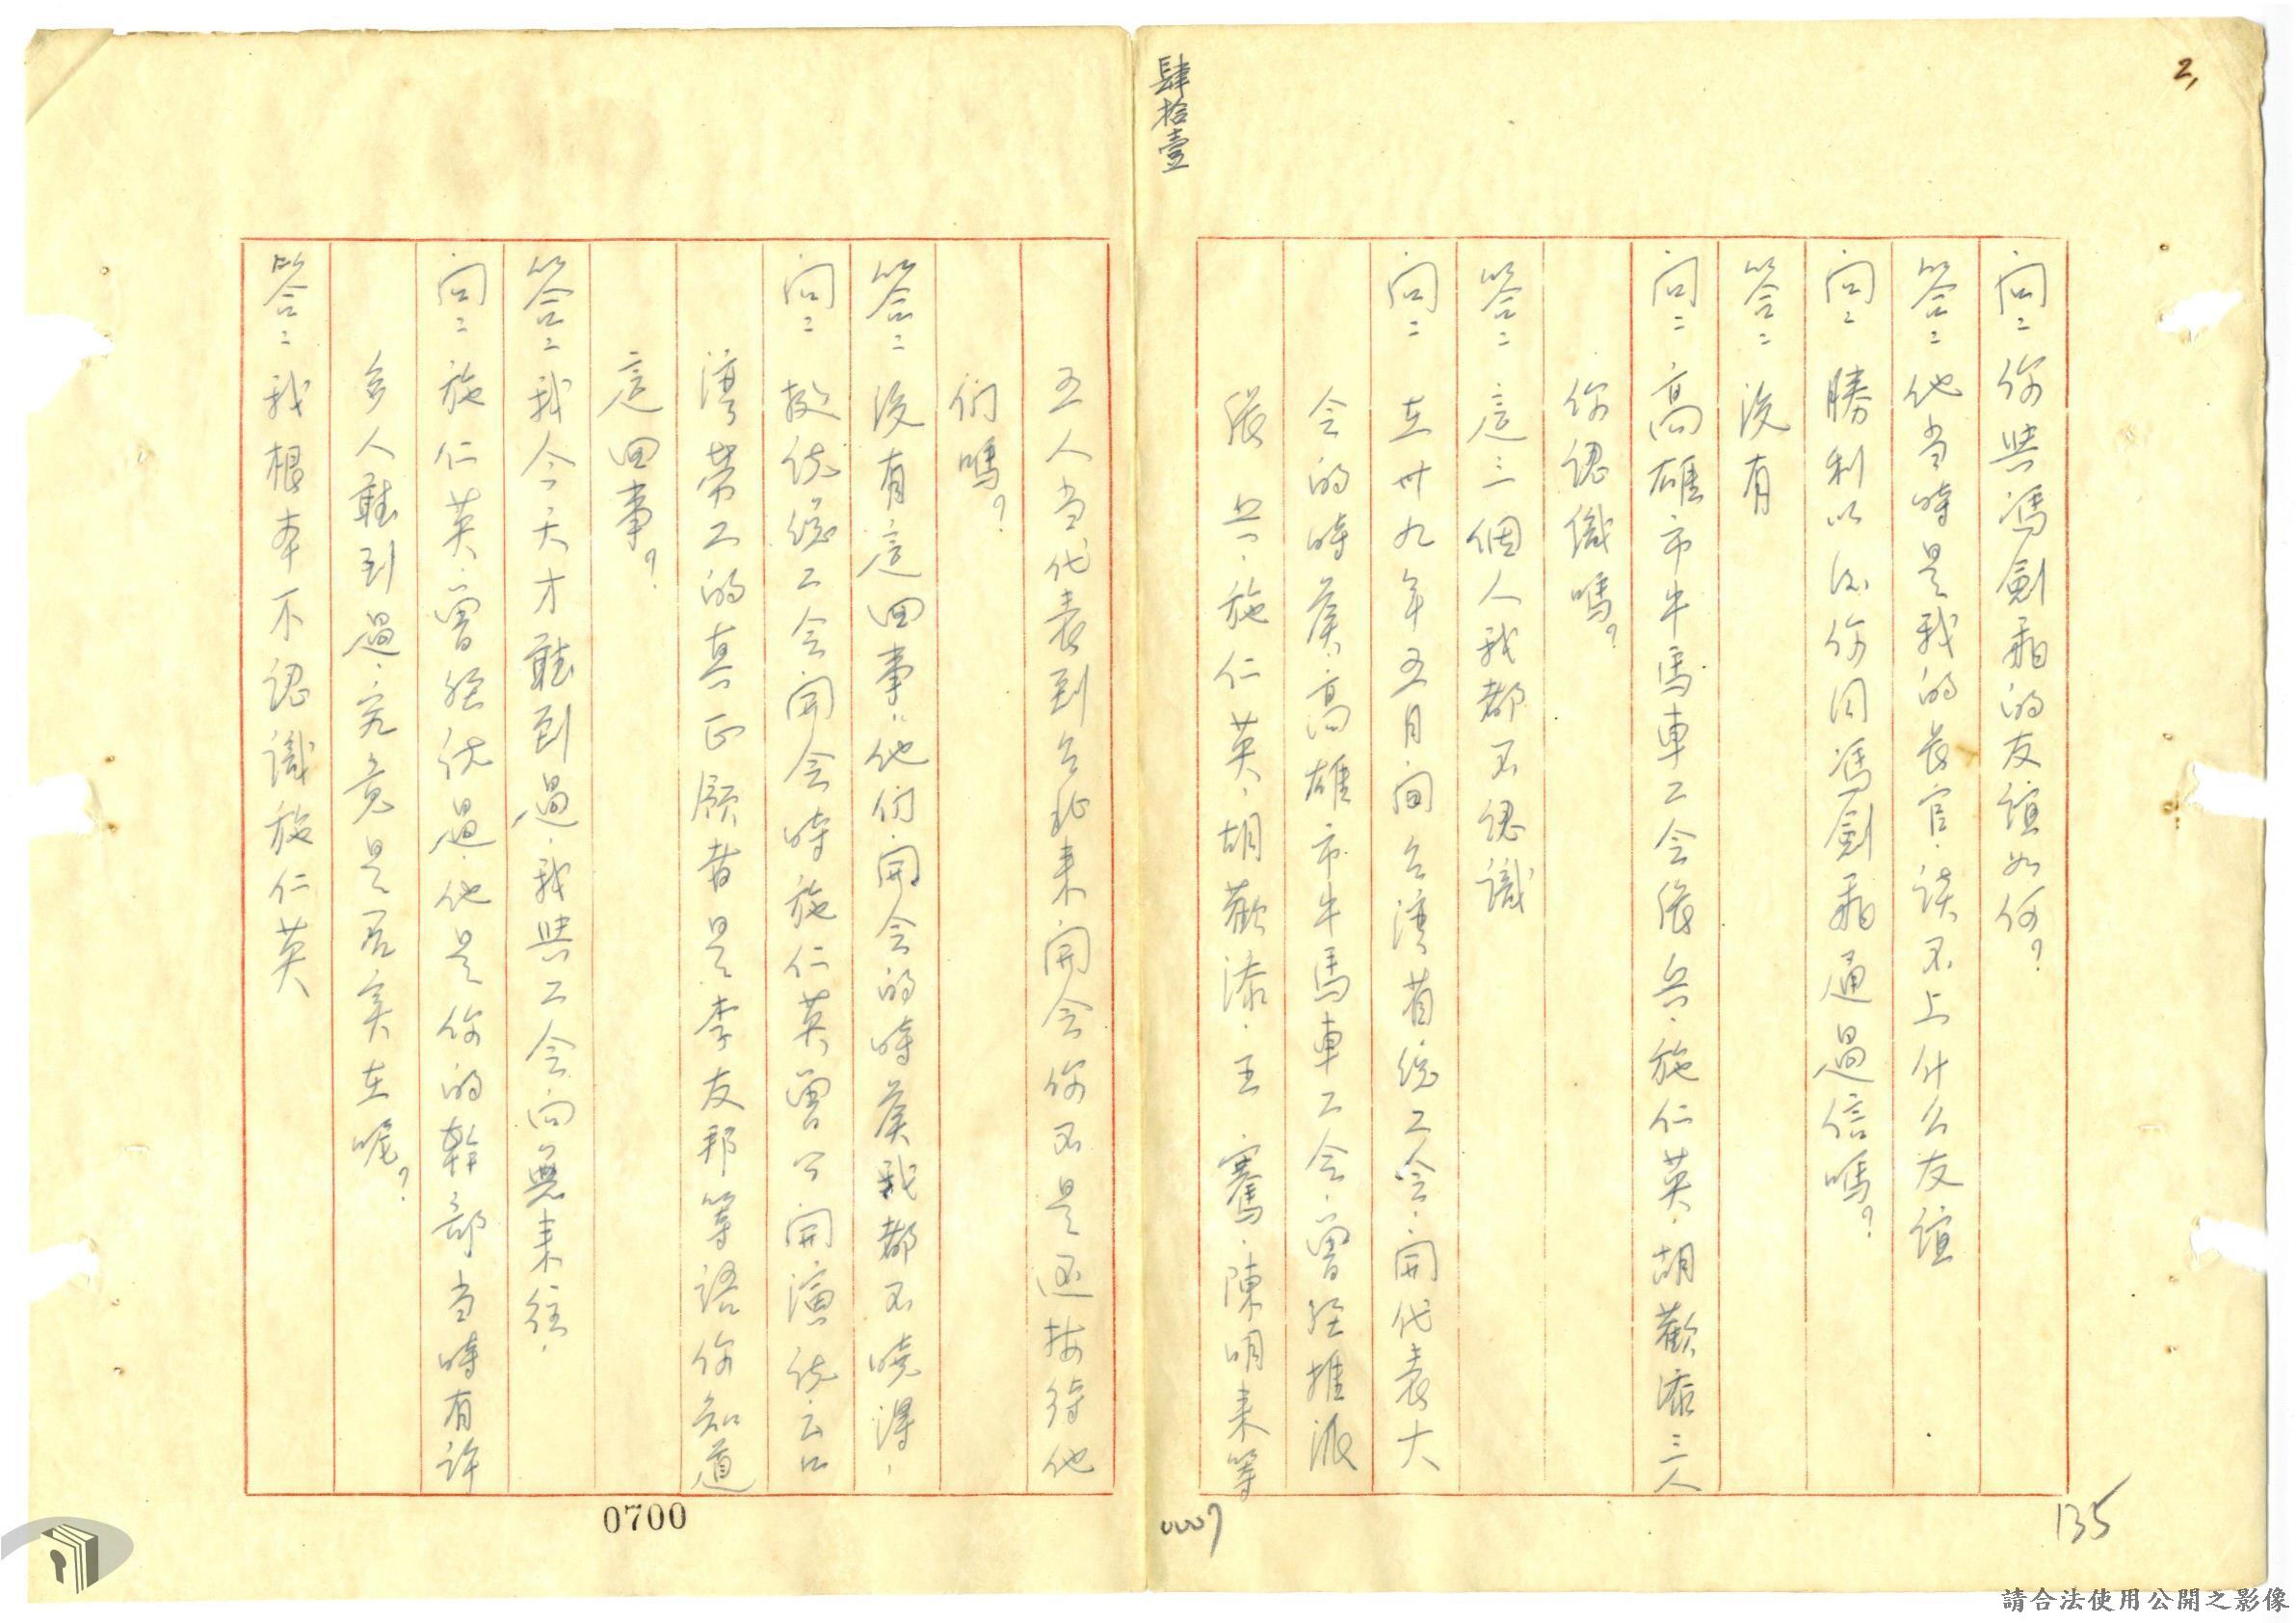 2,
肆拾壹
問：你與馮劍飛的友誼如何？
答：他当時是我的長官．談不上什么友誼
問：勝利以後你同馮劍飛通過信嗎？
答：沒有
問：高雄市牛馬車工会張兵．施仁英．胡歡添三人
你認識嗎？
答：這三個人我都不認識
問：在卅九年五月间台湾省総工会．開代表大
会的時候．高雄市牛馬車工会．曾経推派
張兵．施仁英．胡歡添．王騫．陳明来等
五人当代表到台北来開会你不是还招待他
们嗎？
答：沒有這回事．他们開会的時候我都不曉得．
問：据说総工会開会時施仁英曾公開演说云台
湾劳工的真正領者是李友邦等語你知道
這回事？
答：我今天才聽到過．我與工会向無来往．
問：施仁英．曾経说過．他是你的幹部当時有許
多人聽到過．究竟是否实在呢？
答：我根本不認識施仁英
0700
0007
135
請合法使用公開之影像